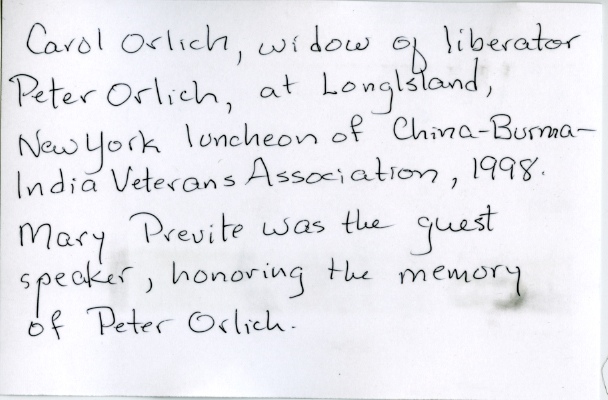 Carol Orlich, widow of liberator
Peter Orlich, at Long Island,
New York luncheon of China-Burma-
India Veterans Association, 1998.
Mary Previte was the guest
speaker, honoring the memory
of Peter Orlich.